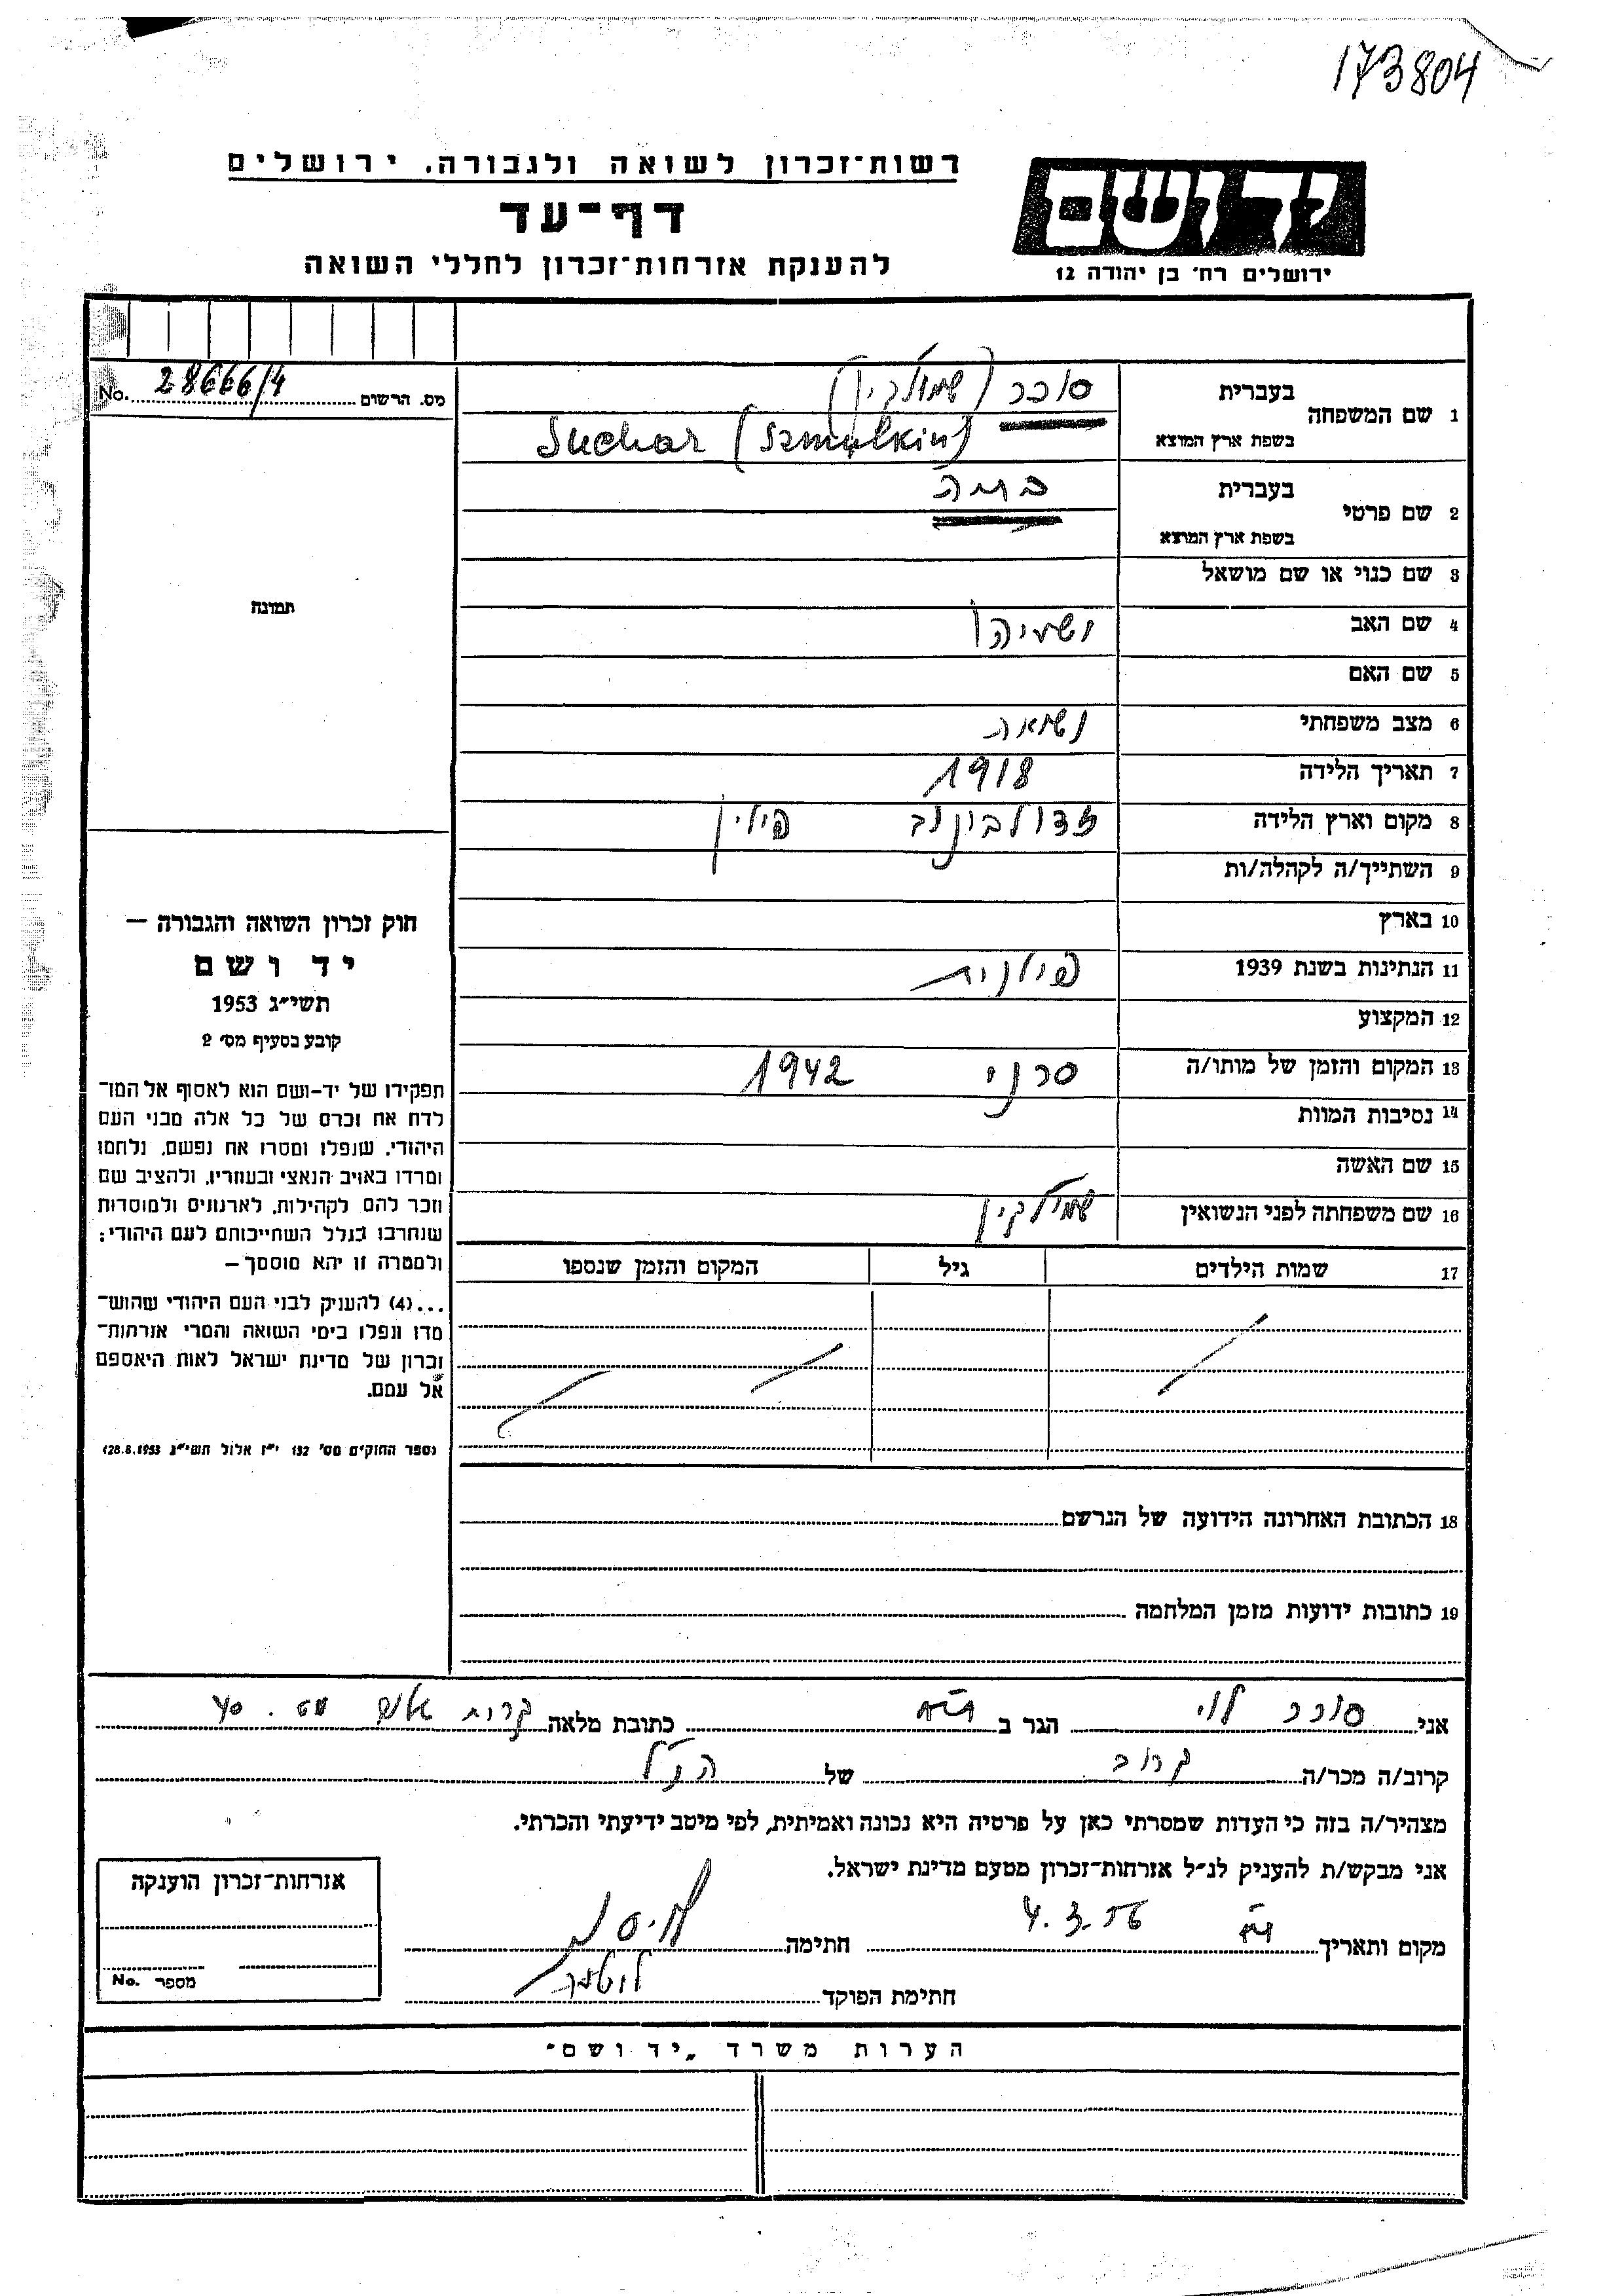 173804
רשות־זכרון לשואה ולגבורה. ירושלים
יד ושם
דף־עד
ירושלים רח׳ בן יהודה 12
להענקת אזרחות־זכרון לחללי השואה
מס. הרשום 28666/4 No.
1 שם המשפחה
בעברית סוכר (שמולקין)
בשפת ארץ המוצא Suchar (Szmulkin)
2 שם פרטי
בעברית
בשפת ארץ המוצא
3 שם כנוי או שם מושאל
4 שם האב ישעיהו
5 שם האם
6 מצב משפחתי נשואה
7 תאריך הלידה 1918
8 מקום וארץ הלידה זדולבונוב פולין
9 השתייך/ה לקהלה/ות
10 בארץ
11 הנתינות בשנת 1939 פולנית
12 המקצוע
13 המקום והזמן של מותו/ה סרני 1942
14 נסיבות המוות
15 שם האשה
16 שם משפחתה לפני הנשואין שמולקין
17 שמות הילדים גיל המקום והזמן שנספו
18 הכתובת האחרונה הידועה של הנרשם
19 כתובות ידועות מזמן המלחמה
תמונה
חוק זכרון השואה והגבורה —
יד ושם
תשי״ג 1953
קובע בסעיף מס׳ 2
תפקידו של יד-ושם הוא לאסוף אל המו־
לדת את זכרם של כל אלה מבני העם
היהודי, שנפלו ומסרו את נפשם, נלחמו
ומרדו באויב הנאצי ובעוזריו, ולהציב שם
וזכר להם לקהילות, לארגונים ולמוסדות
שנחרבו בגלל השתייכותם לעם היהודי;
ולמטרה זו יהא מוסמך —
...(4) להעניק לבני העם היהודי שהוש־
מדו ונפלו בימי השואה והמרי אזרחות־
זכרון של מדינת ישראל לאות היאספם
אל עמם.
(ספר החוקים מס׳ 132 י״ז אלול תשי״ג 28.8.1953)
אני סוכר לוי הגר ב כתובת מלאה קרית 40
קרוב/ה מכר/ה קרוב של הנ״ל
מצהיר/ה בזה כי העדות שמסרתי כאן על פרטיה היא נכונה ואמיתית, לפי מיטב ידיעתי והכרתי.
אני מבקש/ת להעניק לנ״ל אזרחות־זכרון מטעם מדינת ישראל.
מקום ותאריך 4.3.56 חתימה
חתימת הפוקד
אזרחות־זכרון הוענקה
מספר No.
הערות משרד „יד ושם״